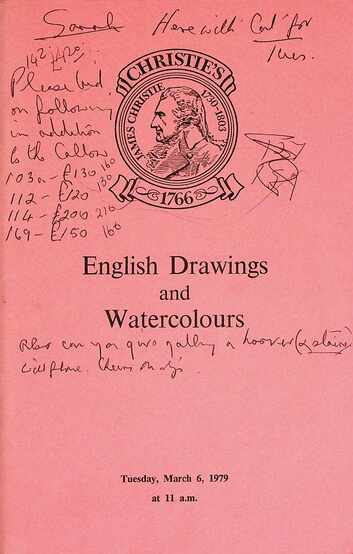 Sarah Here with 'Cat' for
Tues.
142 £420
Please bid
on following
in addition
to the Callow
103a - £130 160
112 - £120 130
114 - £200 210
169 - £150 160
CHRISTIE'S
JAMES CHRISTIE 1730-1803
1766
English Drawings
and
Watercolours
Also can you give gallery a hoover (& stairs)
Will phone. Cheers
Tuesday, March 6, 1979
at 11 a.m.